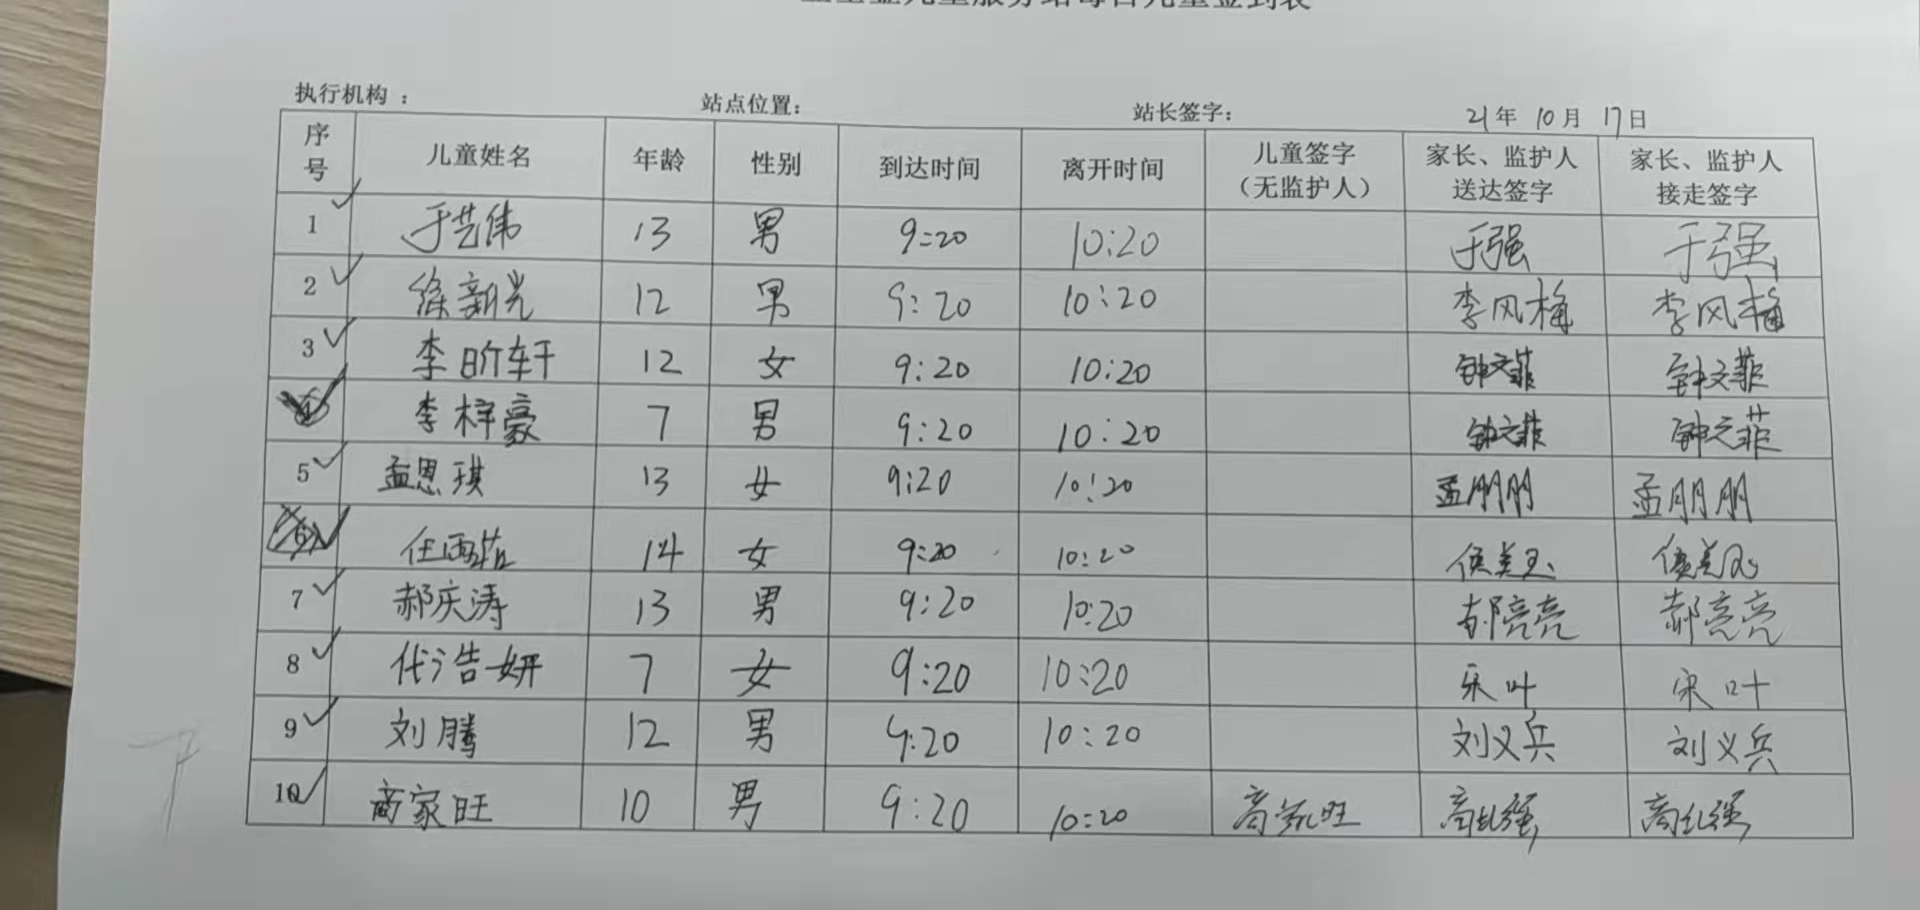 儿童服务站每日儿童签到表
执行机构： 站点位置： 站长签字： 21年 10月 17日
序号 儿童姓名 年龄 性别 到达时间 离开时间 儿童签字（无监护人） 家长、监护人送达签字 家长、监护人接走签字
1 于艺伟 13 男 9:20 10:20 于强 于强
2 徐新光 12 男 9:20 10:20 李风梅 李风梅
3 李昕轩 12 女 9:20 10:20 钟文菲 钟文菲
4 李梓豪 7 男 9:20 10:20 钟文菲 钟文菲
5 孟恩琪 13 女 9:20 10:20 孟朋朋 孟朋朋
6 任雨茹 14 女 9:20 10:20 侯美玉 侯美玉
7 郝庆涛 13 男 9:20 10:20 郝亮亮 郝亮亮
8 代浩妍 7 女 9:20 10:20 宋叶 宋叶
9 刘腾 12 男 9:20 10:20 刘义兵 刘义兵
10 商家旺 10 男 9:20 10:20 商家旺